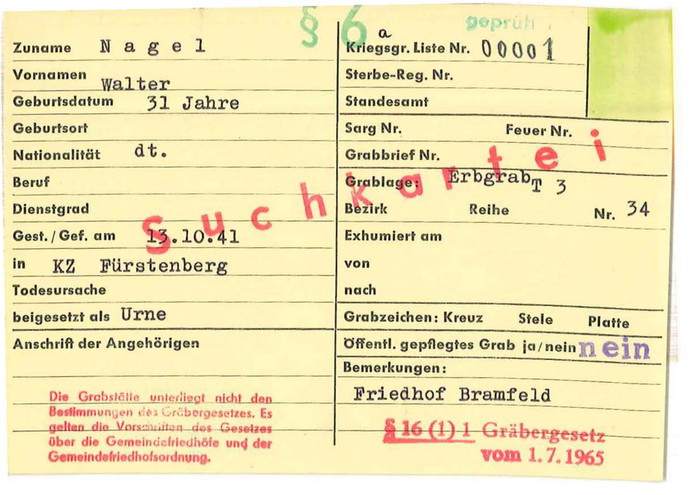 § 6 a
geprüft
Zuname Nagel
Vornamen Walter
Geburtsdatum 31 Jahre
Geburtsort
Nationalität dt.
Beruf
Dienstgrad
Gest./Gef. am 13.10.41
in KZ Fürstenberg
Todesursache
beigesetzt als Urne
Anschrift der Angehörigen
Die Grabstätte unterliegt nicht den
Bestimmungen des Gräbergesetzes. Es
gelten die Vorschriften des Gesetzes
über die Gemeindefriedhöfe und der
Gemeindefriedhofsordnung.
Suchkartei
Kriegsgr. Liste Nr. 00001
Sterbe-Reg. Nr.
Standesamt
Sarg Nr. Feuer Nr.
Grabbrief Nr.
Grablage: Erbgrab T 3
Bezirk Reihe Nr. 34
Exhumiert am
von
nach
Grabzeichen: Kreuz Stele Platte
Öffentl. gepflegtes Grab ja/nein nein
Bemerkungen:
Friedhof Bramfeld
§ 16 (1) 1 Gräbergesetz
vom 1.7.1965